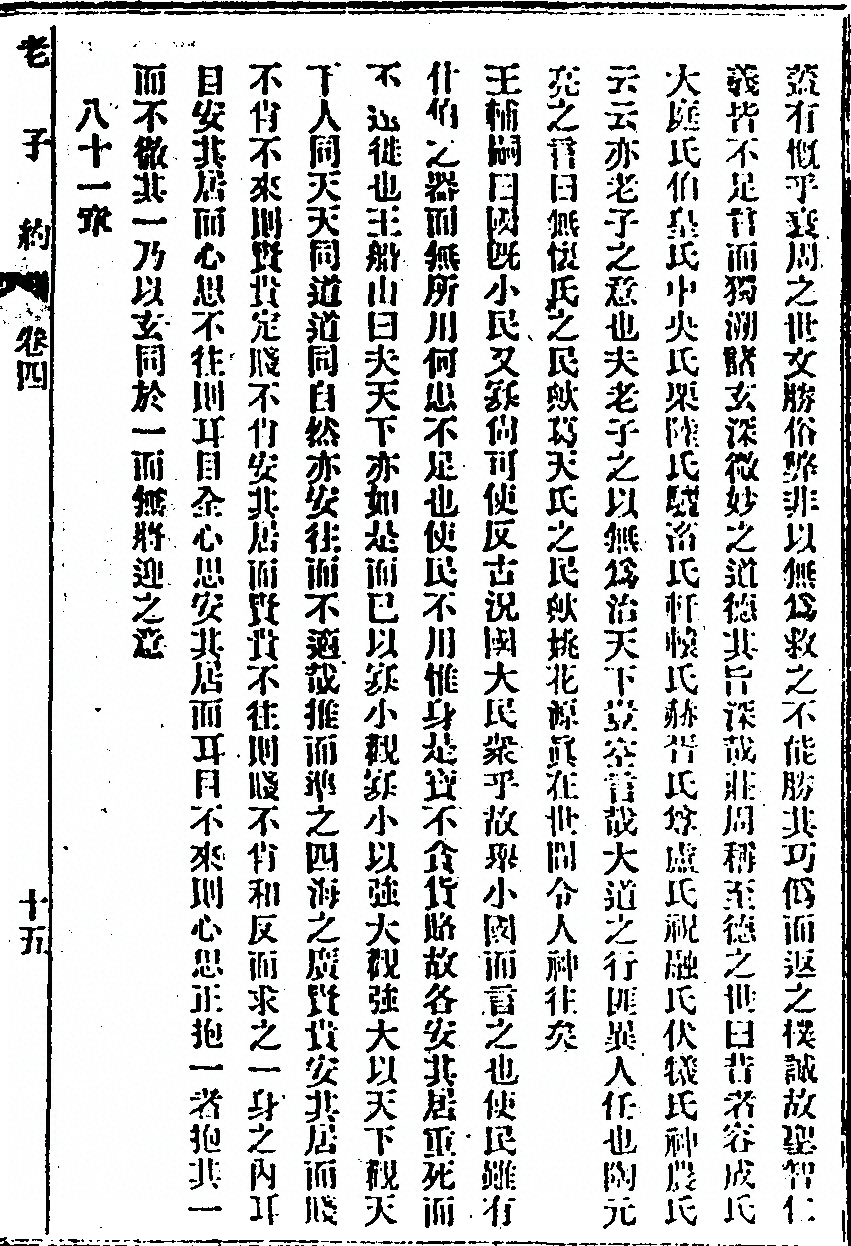 蓋有慨乎衰周之世文勝俗弊非以無爲救之不能勝其巧僞而返之樸誠故聖智仁
義皆不足言而獨溯諸玄深微妙之道德其旨深哉莊周稱至德之世曰昔者容成氏
大庭氏伯皇氏中央氏栗陸氏驪畜氏軒轅氏赫胥氏尊盧氏祝融氏伏犧氏神農氏
云云亦老子之意也夫老子之以無爲治天下豈空言哉大道之行匪異人任也陶元
亮之言曰無懷氏之民歟葛天氏之民歟桃花源眞在世間令人神往矣
王輔嗣曰國旣小民又寡尙可使反古況國大民衆乎故舉小國而言之也使民雖有
什伯之器而無所用何患不足也使民不用惟身是寶不貪貨賂故各安其居重死而
不遠徙也王船山曰夫天下亦如是而已以寡小觀寡小以強大觀強大以天下觀天
下人同天天同道道同自然亦安往而不適哉推而準之四海之廣賢貴安其居而賤
不肯不來則賢貴定賤不肯安其居而賢貴不往則賤不肯和反而求之一身之內耳
目安其居而心思不往則耳目全心思安其居而耳目不來則心思正抱一者抱其一
而不徹其一乃以玄同於一而無將迎之意
八十一章
老子約
卷四
十五